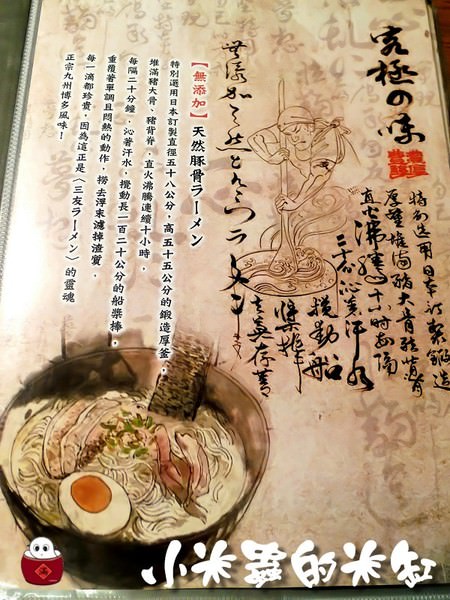 究極の味
特別選用日本訂製鍛造
厚釜堆滿豬大骨豬背骨
直火沸騰十小時每隔
二十分沁著汗水
攪動船
槳
無添加
【無添加】天然豚骨ラーメン
特別選用日本訂製直徑五十八公分，高五十五公分的鍛造厚釜，
堆滿豬大骨、豬背脊，直火沸騰連續十小時，
每隔二十分鐘，沁著汗水，攪動長一百二十公分的船槳棒，
重覆著單調且悶熱的動作，撈去浮末濾掉渣質，
每一滴都珍貴，因為這正是〈三友ラーメン〉的靈魂
正宗九州博多風味！
小米蟲的米缸